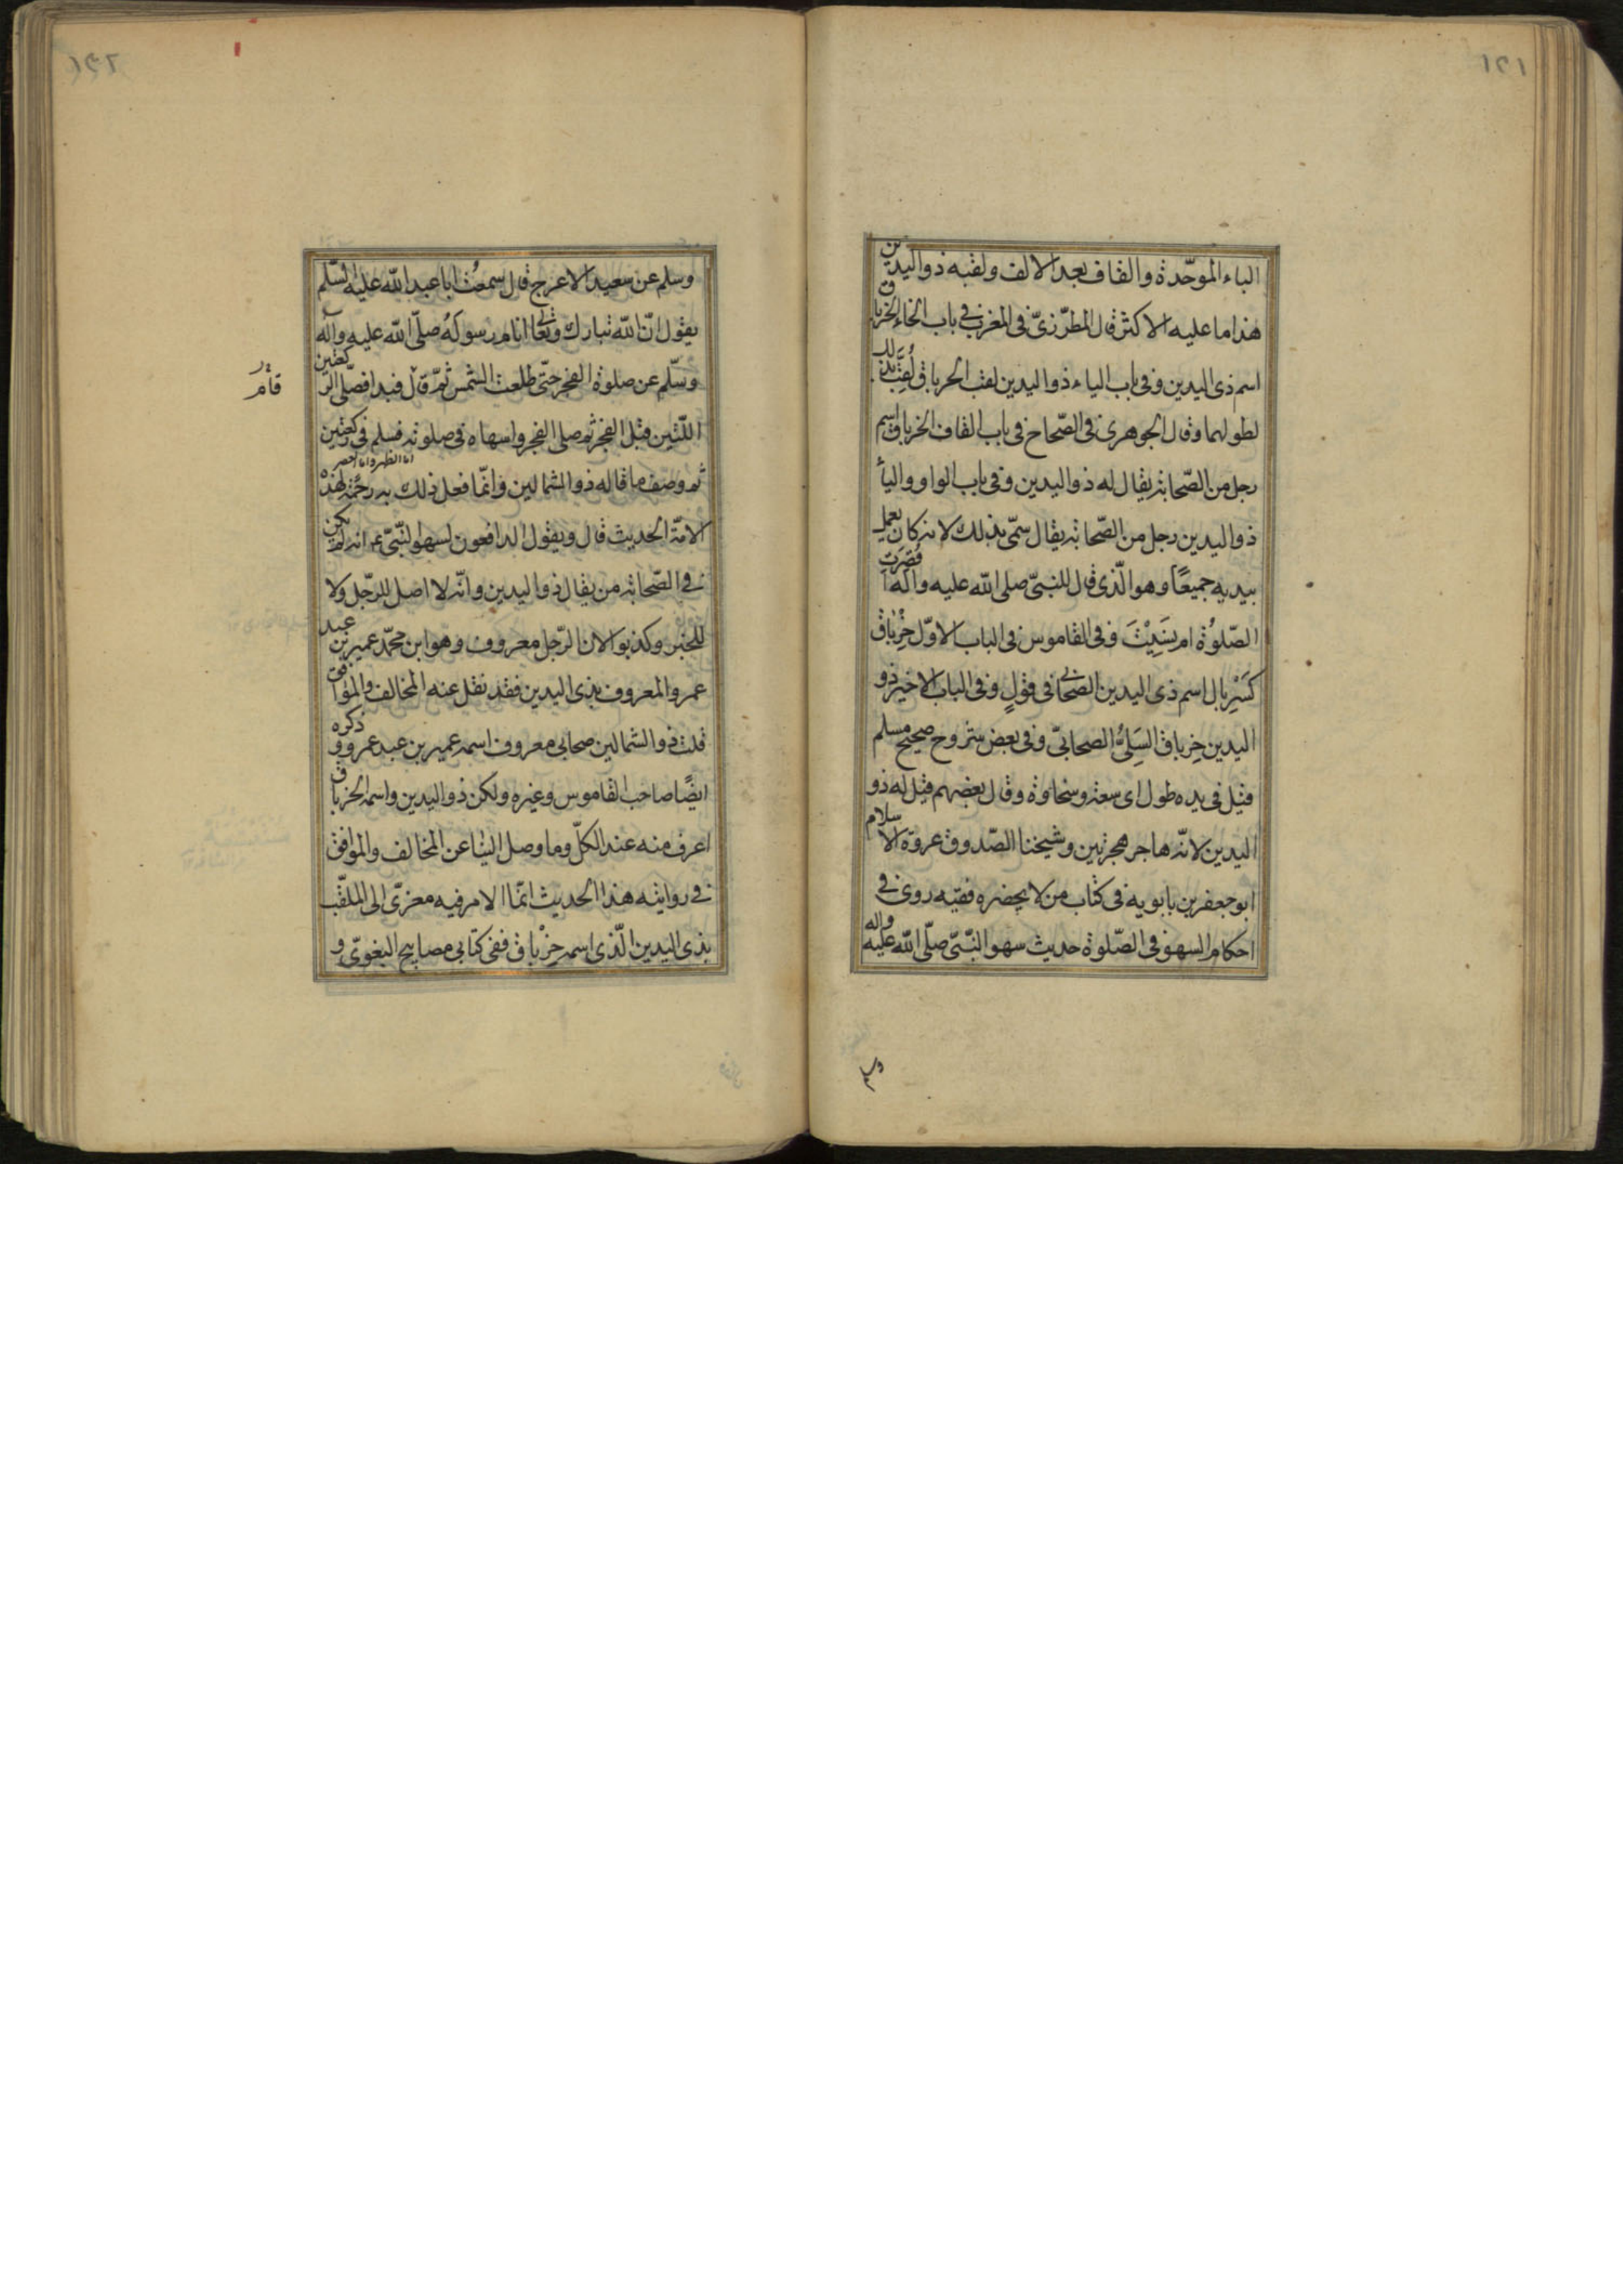 الباء الموحّدة والقاف بعد الالف ولقبه ذو اليدين
هذا ما عليه الاكثر قال المطرّزيّ فى المغرب فى باب الخاء الخرباق
اسم ذى اليدين وفى باب الياء ذو اليدين لقب الخرباق لُقِّبَ بذلك
لطولهما وقال الجوهرى فى الصّحاح فى باب القاف الخرباق اسم
رجل من الصّحابة يقال له ذو اليدين وفى باب الواو والياء
ذو اليدين رجل من الصّحابة يقال سمّى بذلك لانه كان يعمل
بيديه جميعًا وهو الّذى قال للنبىّ صلى الله عليه واله اَقُصِرَت
الصّلوٰة ام نَسِيْتَ وفى القاموس فى الباب الاوّل خِرْبٰاق
كَسِرْبال اسم ذى اليدين الصّحابى فى قولٍ وفى الباب الاخير ذو
اليدين خِرباق السُلَمِىُّ الصحابىّ وفى بعض شروح صحيح مسلم
قيل فى يده طول اى سعة وسخاوة وقال بعضهم قيل له ذو
اليدين لانّه هاجر هجرتين وشيخنا الصّدوق عروة الاسلام
ابو جعفر بن بابويه فى كتاب من لا يحضره فقيه روى فى
احكام السهو فى الصّلوة حديث سهو النّبىّ صلّى الله عليه واله
وسلم
وسلم عن سعيد الاعرج قال سمعتُ ابا عبد الله عليه السّلم
يقول انّ الله تبارك وتعالى انام رسوله صلّى الله عليه واله
وسلّم عن صلوة الفجر حتّى طلعت الشمس ثمّ قام فبدا فصلّى الركعتين
اللّتين قبل الفجر ثم صلى الفجر واسهاه فى صلوته فسلم فى ركعتين
اما الظهر واما العصر
ثم وصف ما قاله ذو الشمالين وانّما فعل ذلك به رحمة لهذه
الامّة الحديث قال ويقول الدافعون لسهو النّبىّ ع انه لم يكن
فى الصّحابة من يقال ذو اليدين وانّه لا اصل للرّجل ولا
للخبر وكذبوا لان الرّجل معروف وهو ابن محمّد عمير بن عبد
عمرو المعروف بذى اليدين فقد نقل عنه المخالف والموافق
قلت ذو الشمالين صحابى معروف اسمه عمير بن عبد عمرو وذكره
ايضًا صاحب القاموس وغيره ولكن ذو اليدين واسمه الخرباق
اعرف منه عند الكلّ وما وصل الينا عن المخالف والموافق
فى روايته هذا الحديث انّما الامر فيه معزىّ الى الملقّب
بذى اليدين الّذى اسمه خِرْباق ففى كتابى مصابيح البغوىّ و